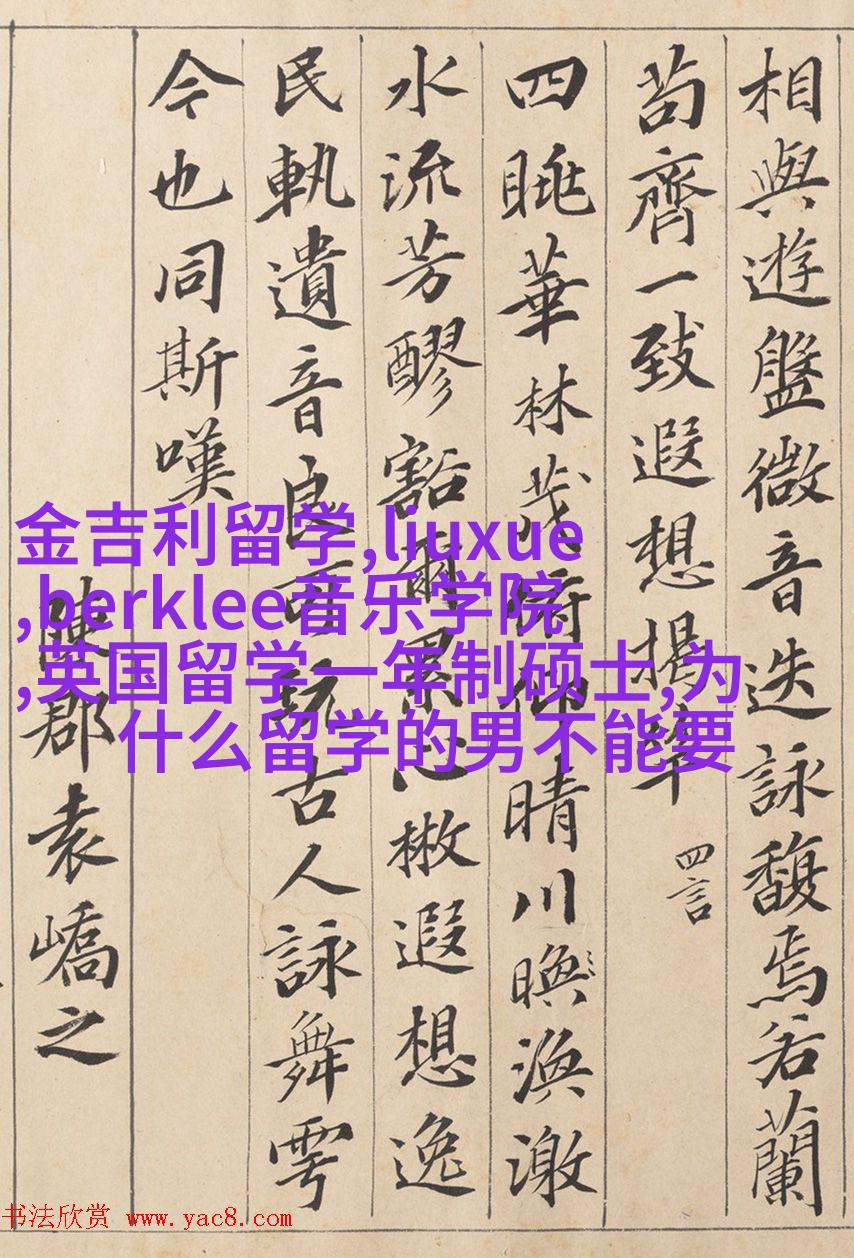 相與遊盤微音迭詠馥焉若蘭
苟齊一致遐想揭竿 四言
四眺華林茂俯仰晴川喚渙激
水流芳醪豁爾累心楸遐想逸
民軌遺音良可玩古人詠舞雩
今也同斯嘆
陳郡袁嶠之
金吉利留学,liuxue
,berklee音乐学院
,英国留学一年制硕士,为
什么留学的男不能要
书法欣赏 www.yac8.com